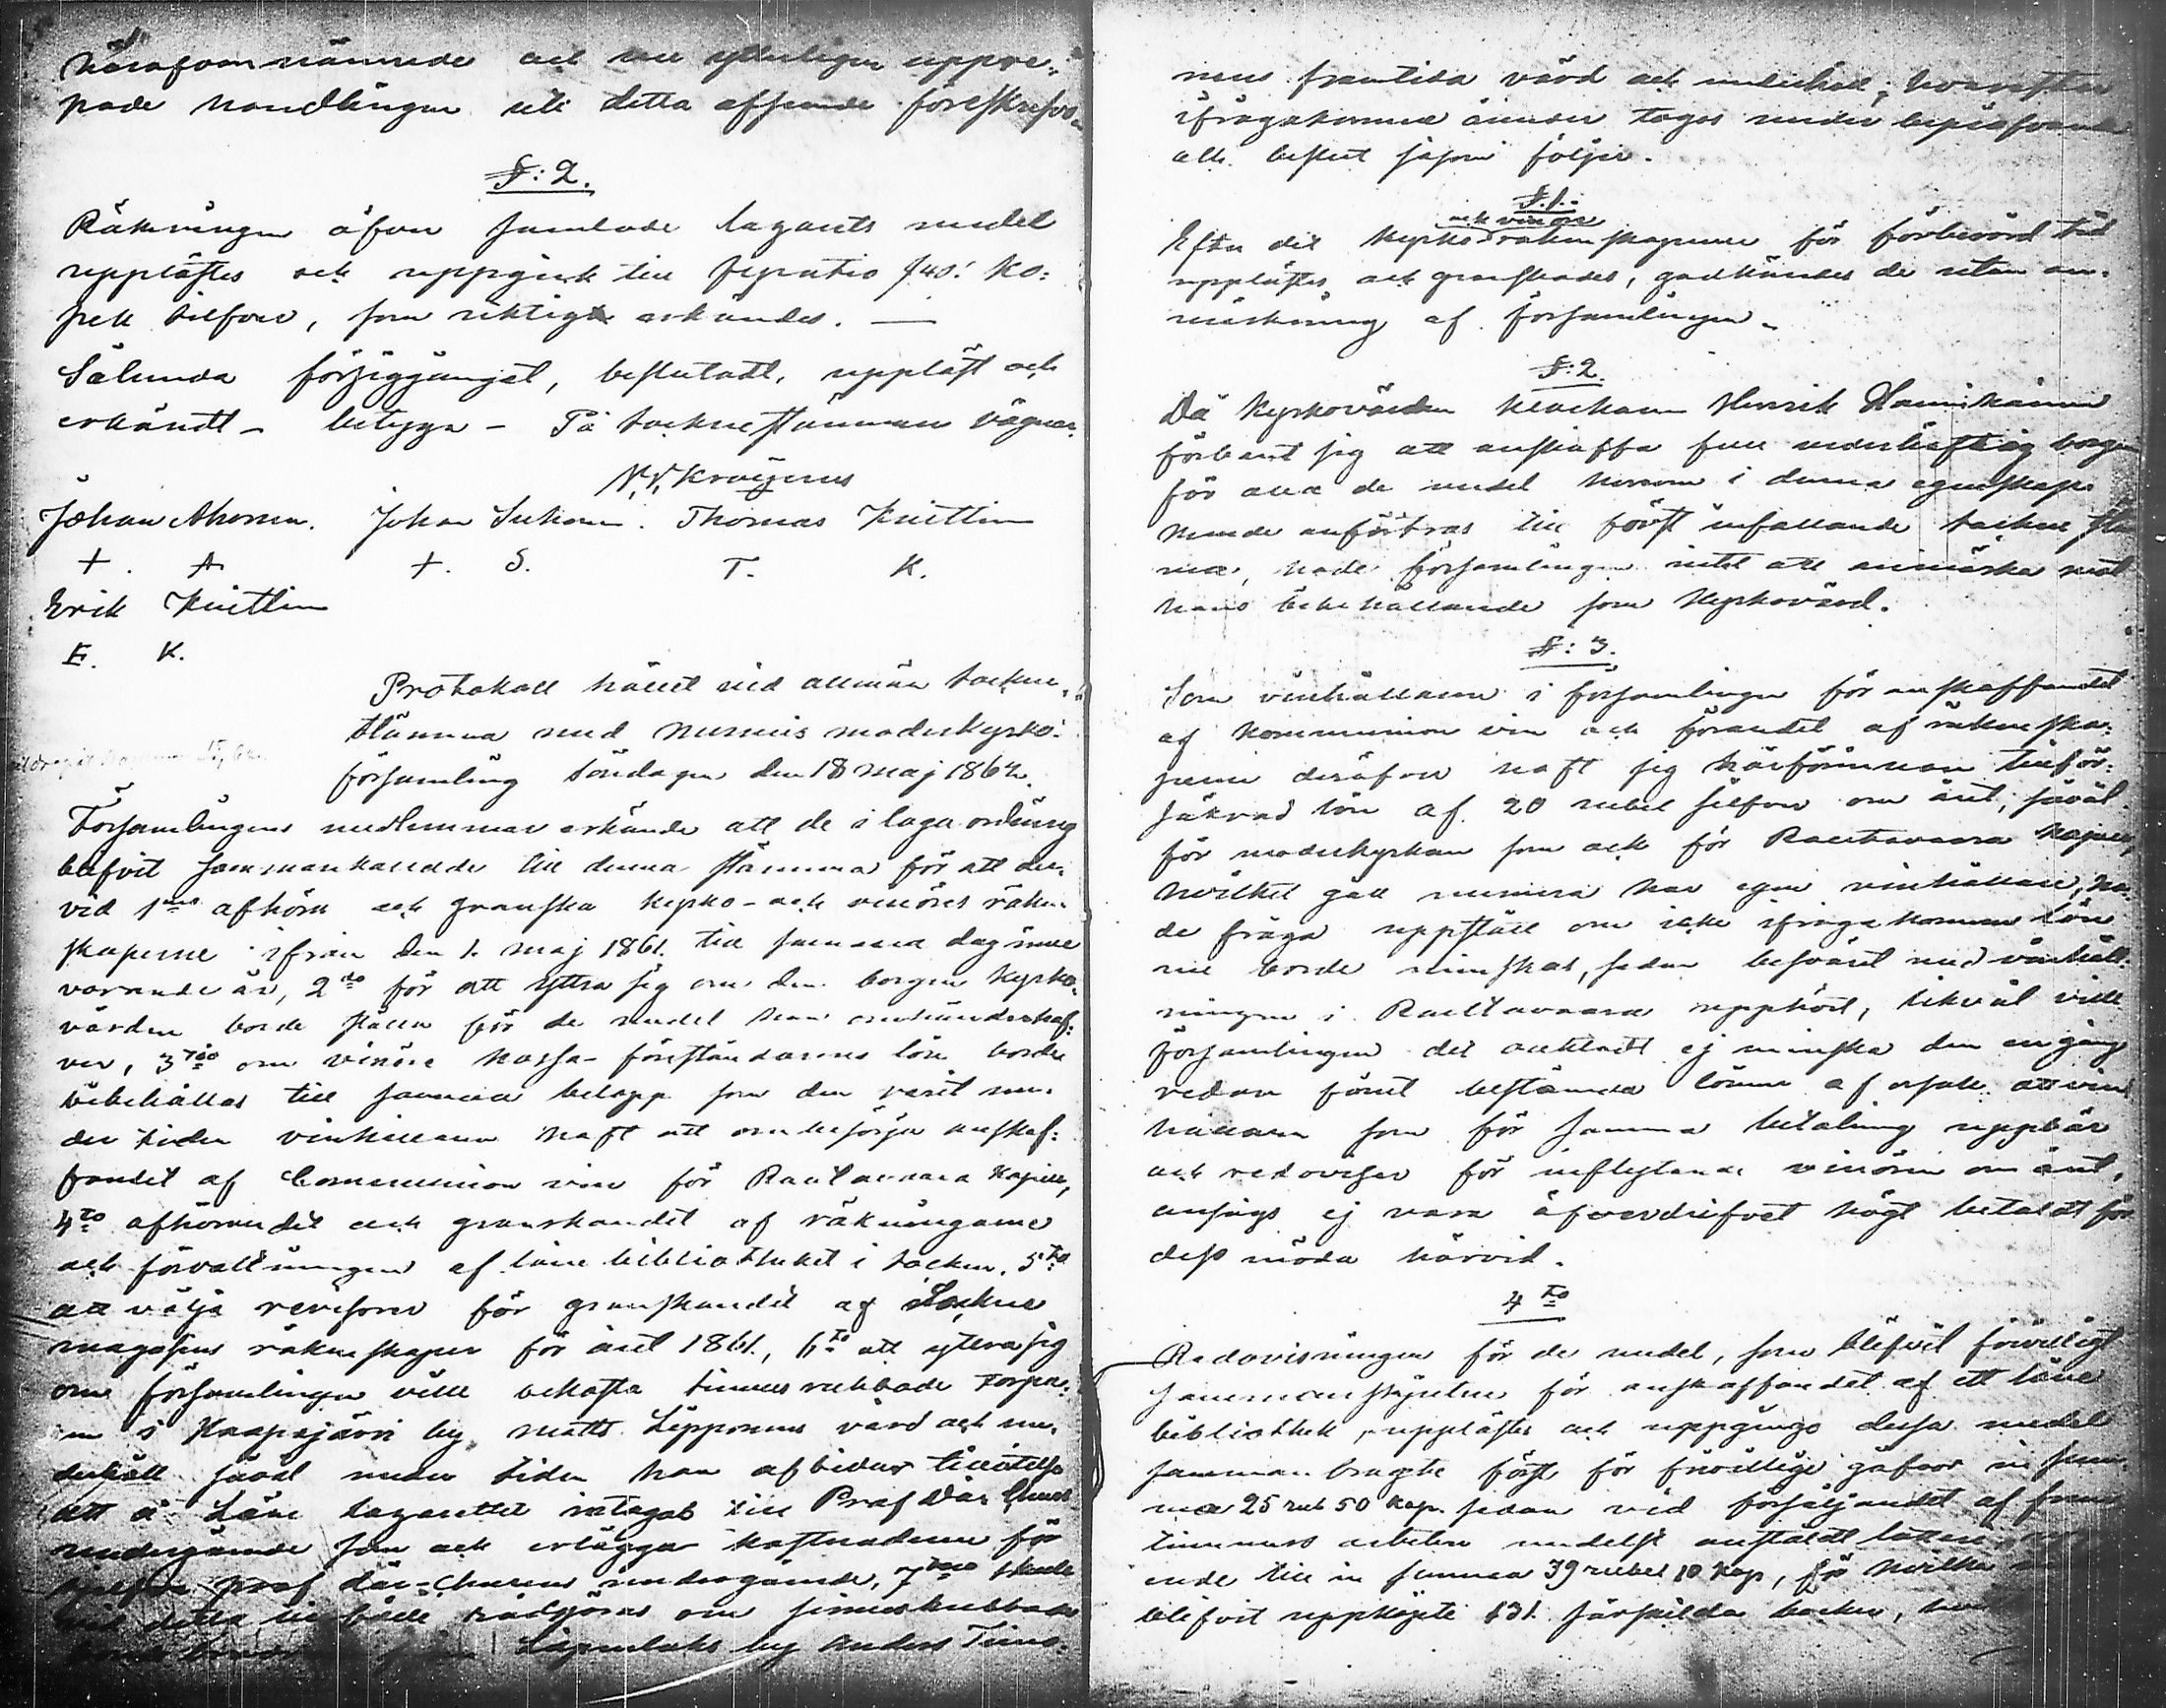 härofvan nämnde och nu ytterligare uppre-
pade handlingen uti detta afseende föreskrefvo.
§: 2.
Räkningen öfver samlade lazaretts medel
upplästes och uppgick till 40: ko-
pek silfver, som riktigt erkändes. —
Sålunda förehafvet, beslutadt, uppläst och
erkändt – betyga – På sockne stämmans vägnar.
Johan Ahonen. Johan Suhonen. Thomas Knuttinen
+. A. +. S. T. K.
Erik Knuttinen
E. K.
Protokoll hållet vid allmän sockne-
stämma med Nurmis moderkyrko-
församling Söndagen den 18 Maj 1862.
Församlingens medlemmar erkände att de i laga ordning
blifvit sammankallade till denna stämma för att der-
vid 1mo afhöra och granska kyrko- och vinöres räken-
skaperne ifrån den 1. maj 1861. till samma dag inne-
varande år, 2do för att yttra sig om den borgen kyrko-
värden borde ställa för de medel han omhänderhaf-
ver, 3tio om vinöre kassa-föreståndarens lön borde
bibehållas till samma belopp som den varit un-
der tiden vinhållaren haft att ombesörja anskaf-
fandet af Communion vin för Rautavaara kapell,
4to afhörandet och granskandet af räkningarne
och förvaltningen af låne bibliotheket i socknen, 5to
att välja revisorer för granskandet af Sockne
magasins räkenskaper för året 1861., 6to att yttra sig
om församlingen ville bekosta sinnesrubbade
i Haapajärvi by Matts Lipponens vård och un-
derhåll såväl under tiden han afbidar tillåtelse
att å Läns lazarettet intagas till Prof Där Churens
undergående som och erlägga kostnaderne för
prof där-Churens undergående, 7mo skulle
detta rådgöras om sinnesrubbade
by Anders
nens framtida vård och underhåll; hvarefter
ifrågakomne ämnen togos under bepröfvande
och beslut såsom följer.
§. 1.
och vinöre
Efter det kyrko räkenskaperne för förberörd tid
upplästes och granskades, godkändes de utan an-
märkning af församlingen.
§: 2
Då kyrkovärden Klockaren Henrik
förbant sig att anskaffa full vederhäftig borgen
för alla de medel honom i denna egenskap
kunde anförtros till först infallande sockne stäm
ma, hade församlingen intet att anmärka mot
hans bibehållande som Kyrkovärd.
§: 3.
Som vinhållaren i församlingen för anskaffandet
af kommunion vin och förandet af räkenska-
perne deröfver haft sig härförinnan tillför-
säkrad lön af 20 rubel silfver om året, såväl
för moderkyrkan som och för Rautavaara kapell,
hvilket gäll numera har egen vinhållare, ha-
de fråga uppstått om icke ifrågakomne lön
nu borde minskas, sedan besväret med vinhåll-
ningen i Rautavaara upphört, likväl ville
församlingen det oaktadt ej minska den en gång
redan förut bestämda lönen af orsak att vin
hållaren som för samma betalning uppbär
och redovisar för inflytande vinören om året,
ansågs ej vara öfverdrifvet högt betaldt för
dess möda härvid.
4to
Redovisningen för de medel, som blifvit frivilligt
sammanskjutne för anskaffandet af ett låne
bibliothek, upplästes och uppgingo dessa medel
sammanbragte först för frivillige gåfvor in sum-
ma 25 rub 50 kop. sedan vid försäljandet af frun-
timmers arbeten medelst anstäldt lotteri
ende till in summa 39 rubel 10 kop, för hvilka
blifvit uppköpte 131. särskilda böcker,